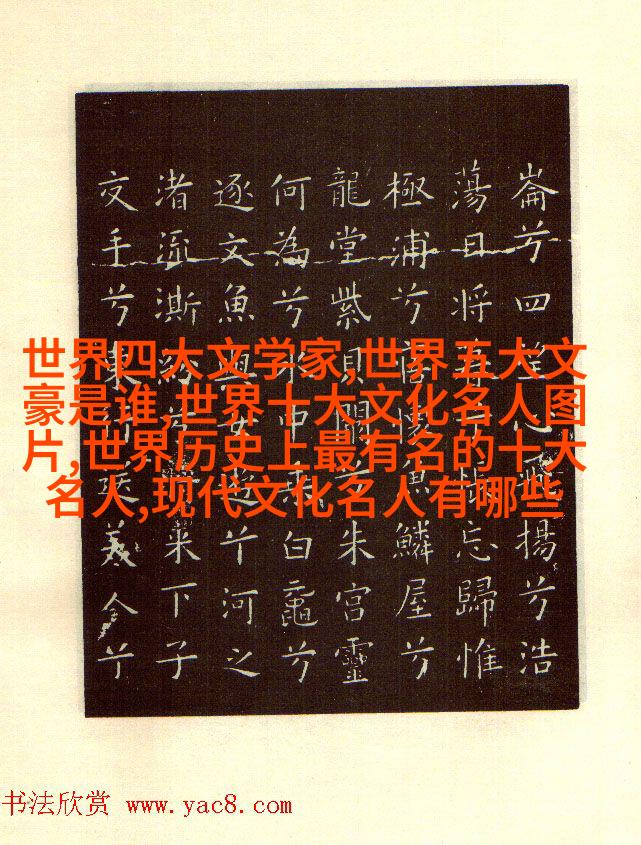 崙兮四望心飛揚兮浩
蕩日將兮忘歸惟
極浦兮寤懷魚鱗屋兮
龍堂紫貝闕兮朱宮靈
何為兮水中乘白黿兮
逐文魚與女遊兮河之
渚流澌紛兮來下子
交手兮東行送美人兮
世界四大文学家,世界五大文
豪是谁,世界十大文化名人图
片,世界历史上最有名的十大
名人,现代文化名人有哪些
书法欣赏 www.yac8.com